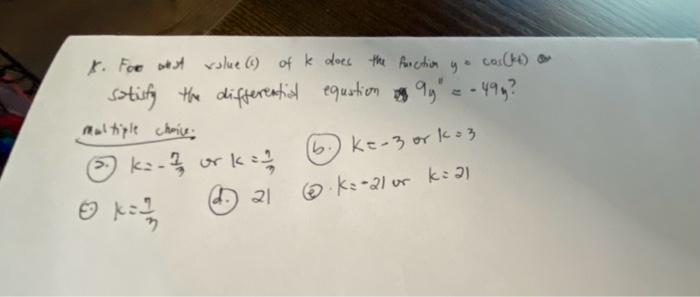 8. For what value(s) of k does the function y = cos(kt)
satisfy the differential equation 9y" = -49y?
multiple choice.
a. k = -7/3 or k = 7/3
b. k = -3 or k = 3
c. k = 7/3
d. 21
e. k = -21 or k = 21